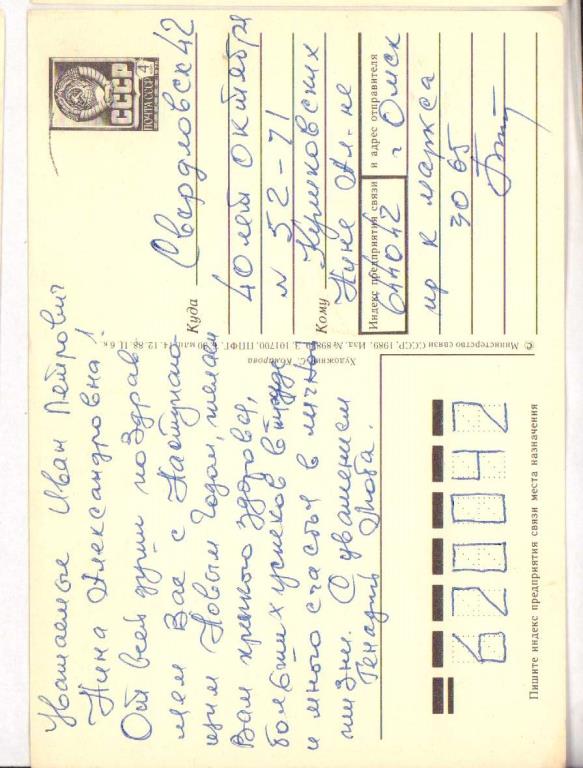 Уважаемые Иван Петрович
Нина Александровна!
От всей души поздрав
ляем Вас с Наступаю-
щим Новым Годом, желаем
Вам крепкого здоровья,
больших успехов в труде
и много счастья в личной
жизни. С уважением
Генадий Люба.
ПОЧТА СССР
СССР
4
Куда
Свердловск 42
40 лет октября
N 52-71
Кому
Нине Ал-не
Индекс предприятия связи
и адрес отправителя
644042
г Омск
пр к маркса
30 65
© Министерство связи СССР, 1989.
Художник С. Комарова
620042
Пишите индекс предприятия связи места назначения